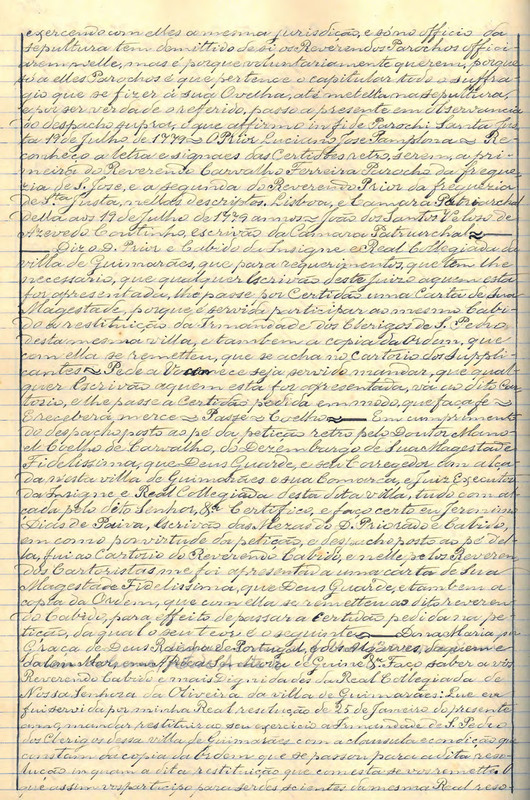 exercendo com elles a mesma jurisdicção, e só no officio da
sepultura tem demittido de si os Reverendos Parochos officia
rem nelle, mas é porque voluntariamente querem, porque
só a elles Parochos é que pertence o capitular todo o suffra
gio que se fizer á sua Ovelha, até mettella na sepultura,
e por ser verdade o referido, passo a presente em observancia
do despacho supra, o que affirmo in fide Parochi Santa Jus
ta 19 de Julho de 1779 O Prior Luciano José Pamplona Re
conheço a letra e signaes das Certidões retro, serem, a pri
meira do Reverendo Carvalho Ferreira Parocho da fregue
zia de S. José, e a segunda do Reverendo Prior da freguezia
de Sta Justa, nellas descriptos. Lisboa, e Camara Patriarchal
della aos 19 de Julho de 1779 annos João dos Santos Veloso de
Azevedo Coutinho, escrivão da Camara Patriarchal
Diz o D. Prior e Cabido da Insigne e Real Collegiada da
villa de Guimarães, que para requerimentos, que tem lhe
necessario, que qualquer Escrivão deste juizo aquem esta
for apresentada, lhe passe por Certidão uma Carta de Sua
Magestade, porque é servida participar ao mesmo Cabi
do a restituição da Irmandade dos Clerigos de S. Pedro
desta mesma villa, e tambem a copia da Ordem, que
com ella se remetteu, que se acha no Cartorio dos Suppli
cantes Pede a seja servido mandar, que qual
quer Escrivão aquem esta for apresentada, vá ao dito Car
torio, e lhe passe a Certidão pedida em modo, que faça fé
E receberá merce Passe Coelho Em cumprimento
do despacho posto ao pé da petição retro pelo Doutor Mano
el Coelho de Carvalho, do Dezembargo de Sua Magestade
Fidelissima, que Deus Guarde, e seu Corregedor com alça
da nesta villa de Guimarães e sua Comarca, e Juiz Executor
da Insigne e Real Collegiada desta dita villa, tudo com al
cada pelo dito Senhor, &a Certifico, e faço certo eu Jeronimo
Dias de Paiva, escrivão das Mezas do D. Priorado e Cabido,
em como por virtude da petição, e despacho posto ao pé del
la, fui ao Cartorio do Reverendo Cabido, e nelle pelos Reveren
dos Cartoristas, me foi apresentada uma carta de Sua
Magestade Fidelissima, que Deus Guarde, e tambem a
copia da Ordem, que com ella se remetteu ao dito reveren
do Cabido, para effeito de passar a certidão pedida na pe
tição, da qual o seu teor é o seguinte Dona Maria por
Graça de Deus Rainha de Portugal, e dos Algarves, daquem e
dalem Mar, em Africa Senhora de Guiné &a Faço saber a vós
Reverendo Cabido e mais Dignidades da Real Collegiada de
Nossa Senhora da Oliveira da villa de Guimarães: Que eu
fui servida por minha Real resolução de 25 de Janeiro do presente
anno, mandar restituir ao seu exercicio a Irmandade de S. Pedro
dos Clerigos dessa villa de Guimarães com a clausula e condição que
constam da copia da Ordem que se passou para a dita reso
lução in quam a dita restituição que com esta se vos remette. O
que assim vos participo para serdes scientes da mesma Real reso